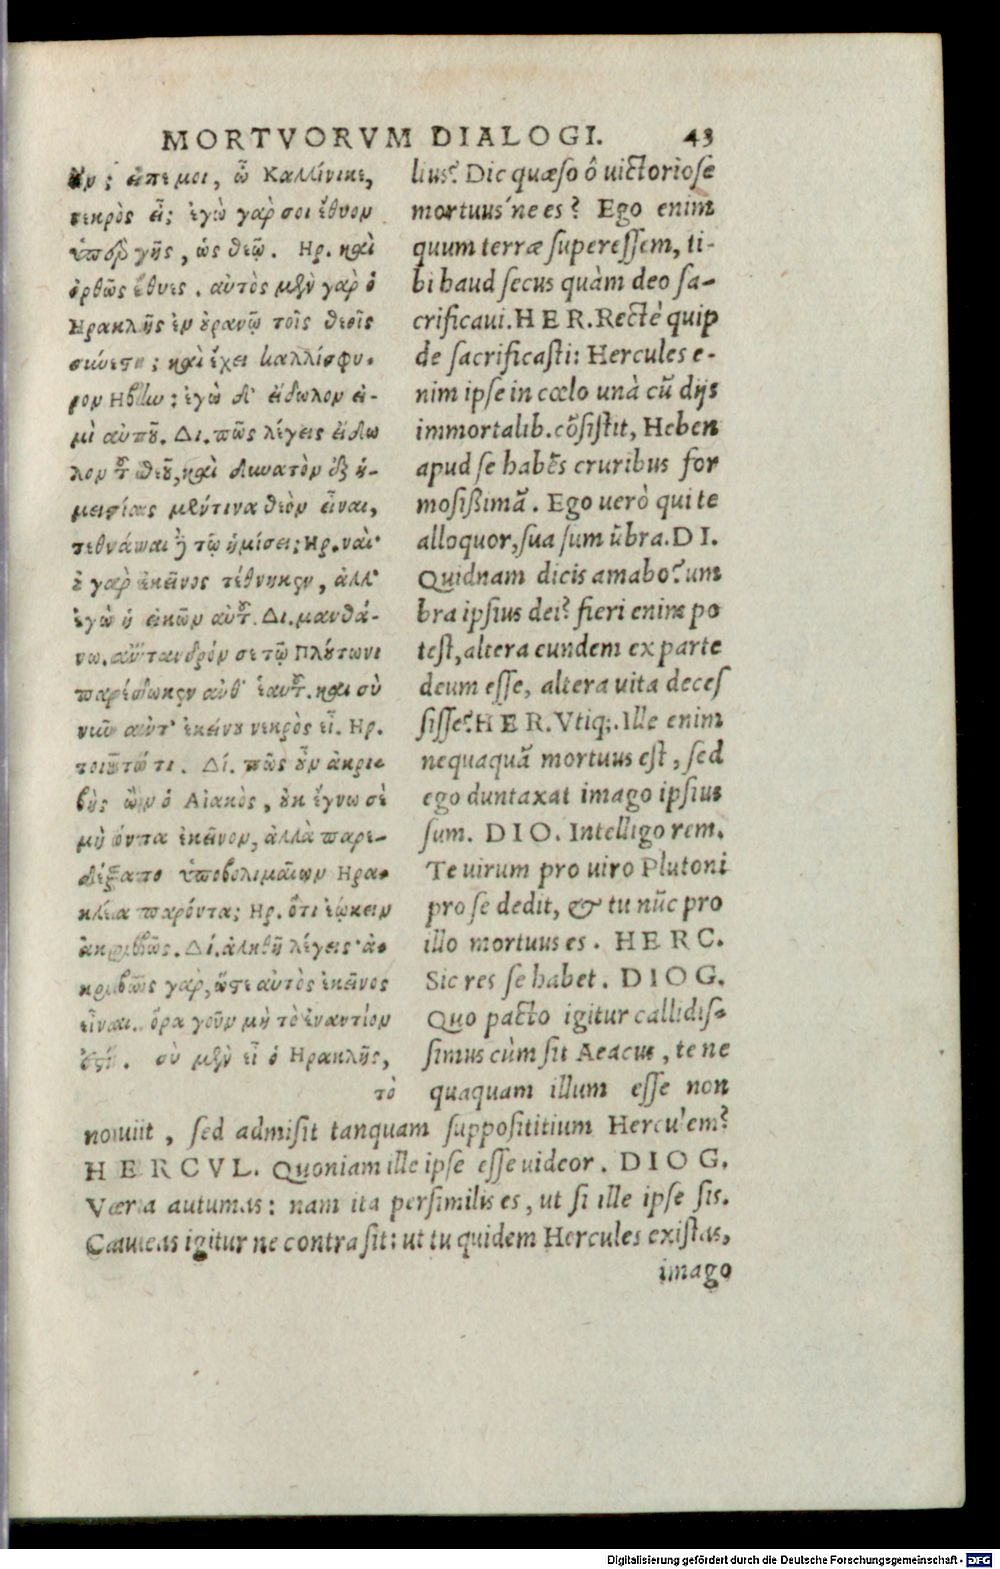 MORTVORVM DIALOGI. 43
ὖν; εἰπέ μοι, ὦ Καλλίνικε,
νεκρὸς εἶ; ἐγὼ γάρ σοι ἔθυον
ὑπὲρ γῆς, ὡς θεῷ. Ηρ. καὶ
ὀρθῶς ἔθυες. αὐτὸς μὲν γὰρ ὁ
Ηρακλῆς ἐν οὐρανῷ τοῖς θεοῖς
σύνεστι; καὶ ἔχει καλλίσφυ-
ρον Ηβίω: ἐγὼ δ' εἴδωλον εἰ-
μὶ αὐτοῦ. Δι. πῶς λέγεις εἴδω
λον τοῦ θεοῦ, καὶ δυνατὸν ἐξ ἡ-
μισείας μέν τινα θεὸν εἶναι,
τεθνάναι δὲ τῷ ἡμίσει; Ηρ. ναί·
οὐ γὰρ ἐκεῖνος τέθνηκεν, ἀλλ'
ἐγὼ ἡ εἰκὼν αὐτοῦ. Δι. μανθά-
νω. ἀντανδρόν σε τῷ Πλούτωνι
παρέδωκεν ἀνθ' ἑαυτοῦ. καὶ σὺ
νῦν ἀντ' ἐκείνου νεκρὸς εἶ. Ηρ.
τοιοῦτό τι. Δί. πῶς οὖν ἀκρι-
βὴς ὢν ὁ Αἰακὸς, οὐκ ἔγνω σὲ
μὴ ὄντα ἐκεῖνον, ἀλλὰ παρε-
δέξατο ὑποβολιμαῖον Ηρα-
κλέα παρόντα; Ηρ. ὅτι ἐῴκειν
ἀκριβῶς. Δί. ἀληθῆ λέγεις· ἀ-
κριβῶς γὰρ, ὥστε αὐτὸς ἐκεῖνος
εἶναι. ὅρα γοῦν μὴ τὸ ἐναντίον
ἐστί. σὺ μὲν εἶ ὁ Ηρακλῆς,
τὸ
lius? Dic quæso ô uictoriose
mortuus'ne es? Ego enim
quum terræ superessem, ti-
bi haud secus quàm deo sa-
crificaui. HER. Rectè quip
de sacrificasti: Hercules e-
nim ipse in cœlo unà cũ dijs
immortalib. cõsistit, Heben
apud se habẽs cruribus for
mosißimã. Ego uerò qui te
alloquor, sua sum ũbra. DI.
Quidnam dicis amabo? um
bra ipsius dei? fieri enim po
test, altera eundem ex parte
deum esse, altera uita deces
sisse? HER. Vtiq;. Ille enim
nequaquã mortuus est, sed
ego duntaxat imago ipsius
sum. DIO. Intelligo rem.
Te uirum pro uiro Plutoni
pro se dedit, & tu nũc pro
illo mortuus es. HERC.
Sic res se habet. DIOG.
Quo pacto igitur callidis-
simus cùm sit Aeacus, te ne
quaquam illum esse non
nouit, sed admisit tanquam supposititium Herculem?
HERCVL. Quoniam ille ipse esse uideor. DIOG.
Vera autumas: nam ita persimilis es, ut si ille ipse sis.
Caueas igitur ne contra sit: ut tu quidem Hercules existas,
imago
Digitalisierung gefördert durch die Deutsche Forschungsgemeinschaft - DFG